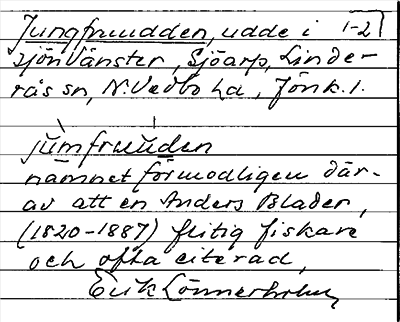 Jungfruudden, udde i 1-2
sjön Vänster, Sjöarp, Linde-
rås sn, N. Vedbo hd, Jönk. l.
jumfruuden
namnet förmodligen där-
av att en Anders Blader,
(1820-1887) flitig fiskare
och ofta citerad,
Erik Lönnerholm